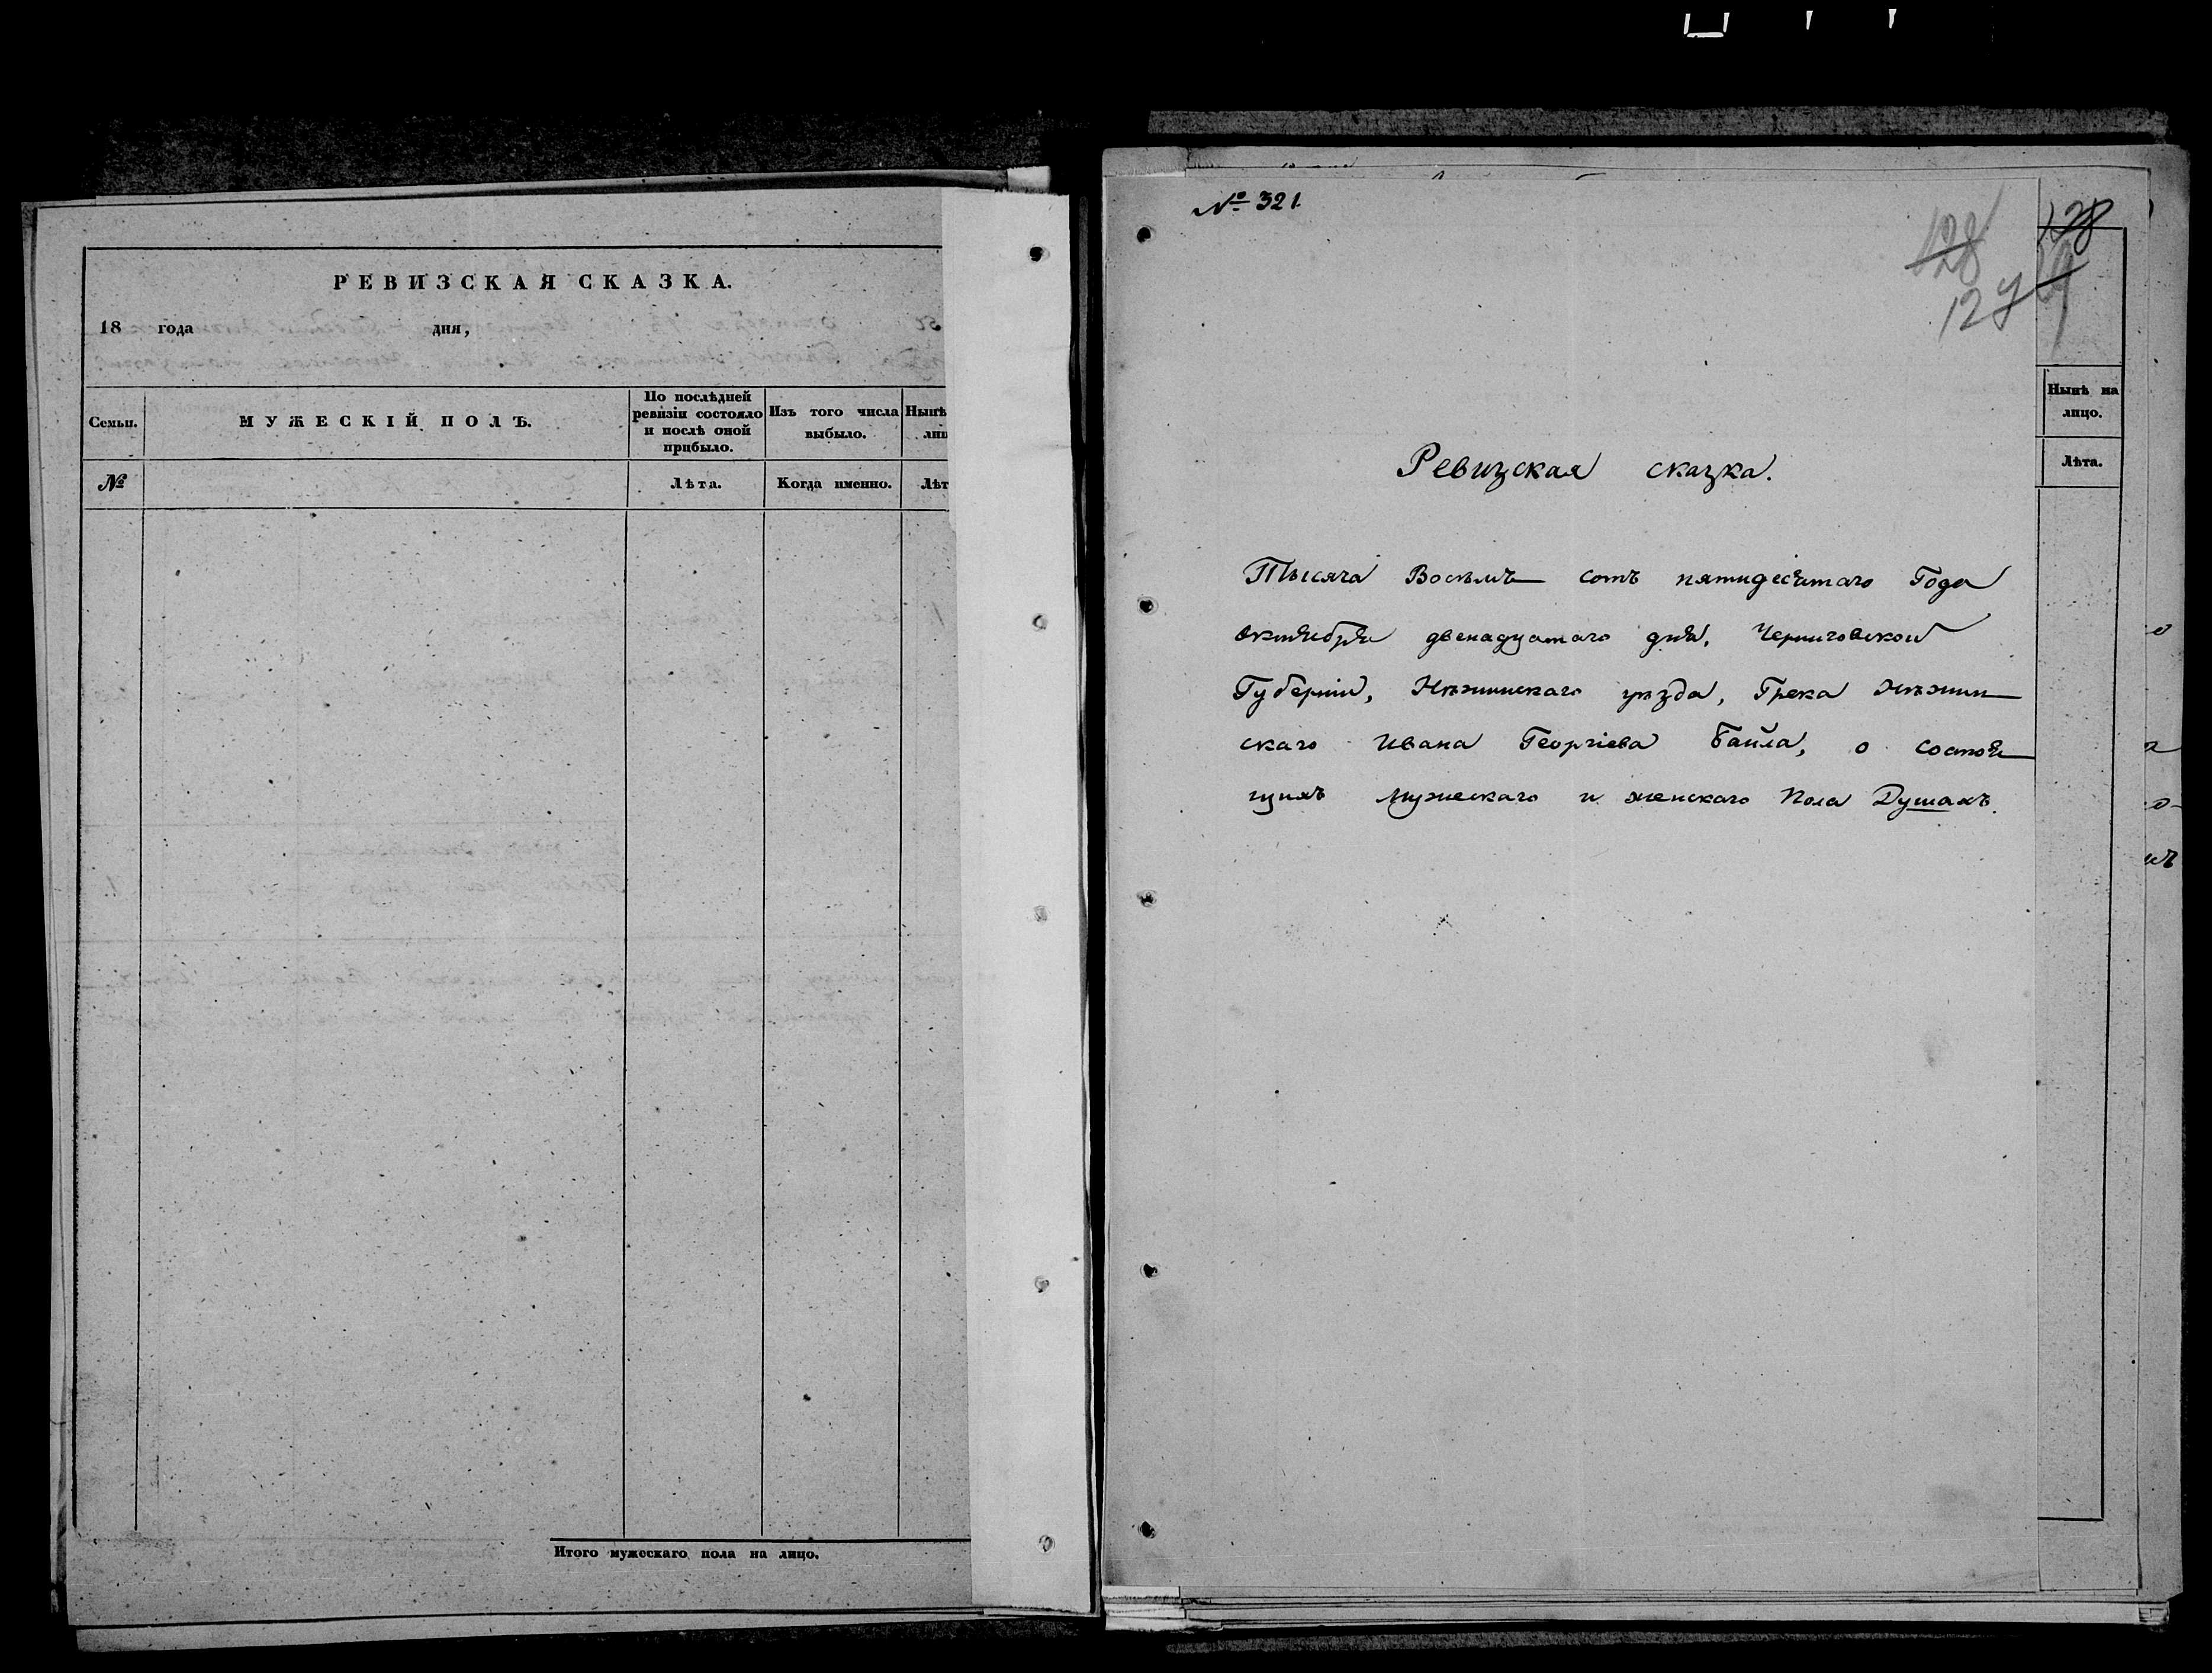 РЕВИЗСКАЯ СКАЗКА.
18 года дня,
Семьи.
МУЖЕСКІЙ ПОЛЪ.
По послѣдней
ревизіи состояло
и послѣ оной
прибыло.
Изъ того числа
выбыло.
Нынѣ
№
Лѣта.
Когда именно.
Лѣт
Итого мужескаго пола на лицо.
№ 321.
128
128
129
Ревизская сказка.
Тысяча Восѣмъ сотъ пятидесятаго Года
октября двенадцатаго дня, Черниговской
Губерніи, Нѣжинскаго уѣзда, Грека Нѣжин
скаго Ивана Георгіева Баила, о состоя
щихъ мужескаго и женскаго Пола Душахъ.
Нынѣ на
лицо.
Лѣта.